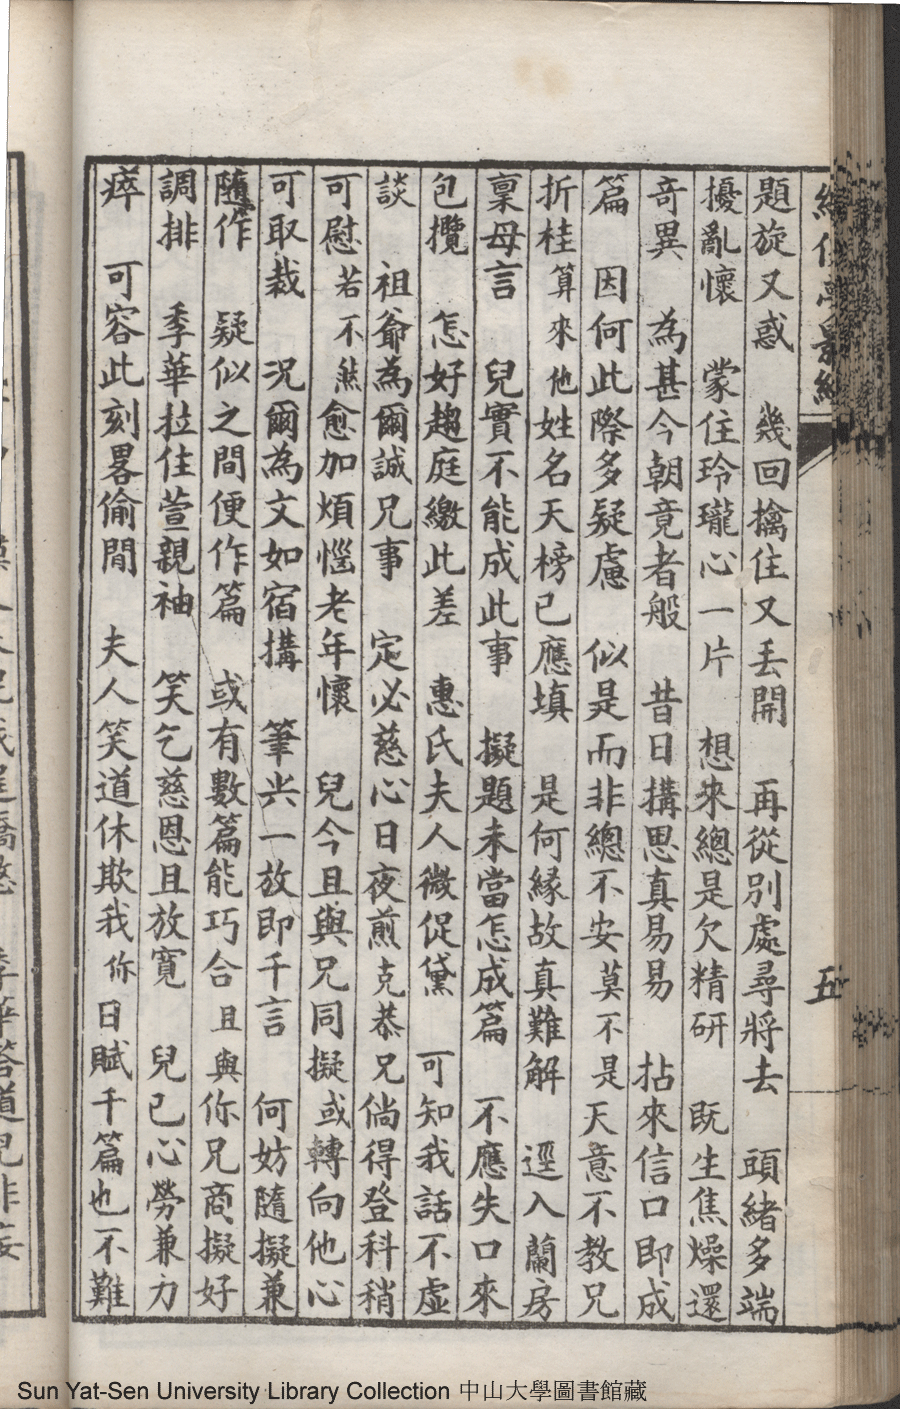 題旋又惑　幾回擒住又丢開　再從別處尋將去　頭緒多端
擾亂懷　蒙住玲瓏心一片　想來總是欠精研　既生焦燥還
奇異　為甚今朝竟者般　昔日搆思真易易　拈來信口即成
篇　因何此際多疑慮　似是而非總不安莫不是天意不教兄
折桂算來他姓名天榜已應填　是何緣故真難解　逕入蘭房
稟母言　兒實不能成此事　擬題未當怎成篇　不應失口來
包攬　怎好趨庭繳此差　惠氏夫人微促黛　可知我話不虛
談　祖爺為爾誠兄事　定必慈心日夜煎克恭兄倘得登科稍
可慰若不然愈加煩惱老年懷　兒今且與兄同擬或轉向他心
可取裁　况爾為文如宿搆　筆尖一放即千言　何妨隨擬兼
隨作　疑似之間便作篇　或有數篇能巧合且與你兄商擬好
調排　季華拉住萱親袖　笑乞慈恩且放寬　兒已心勞兼力
瘁　可容此刻畧偷閒　夫人笑道休欺我你日賦千篇也不難
五
Sun Yat-Sen University Library Collection 中山大學圖書館藏